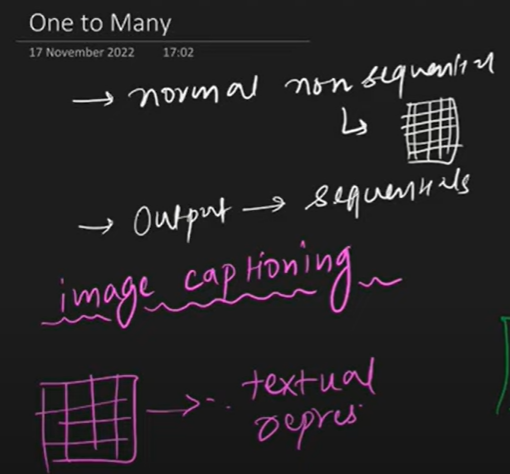 One to Many
17 November 2022 17:02
→ normal non sequential
→ Output → sequentials
image captioning
textual
depres